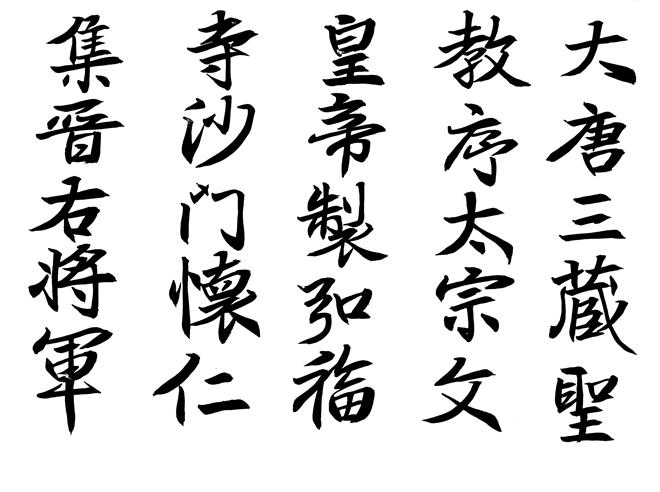 大唐三蔵聖
教序太宗文
皇帝製弘福
寺沙门懷仁
集晋右将軍